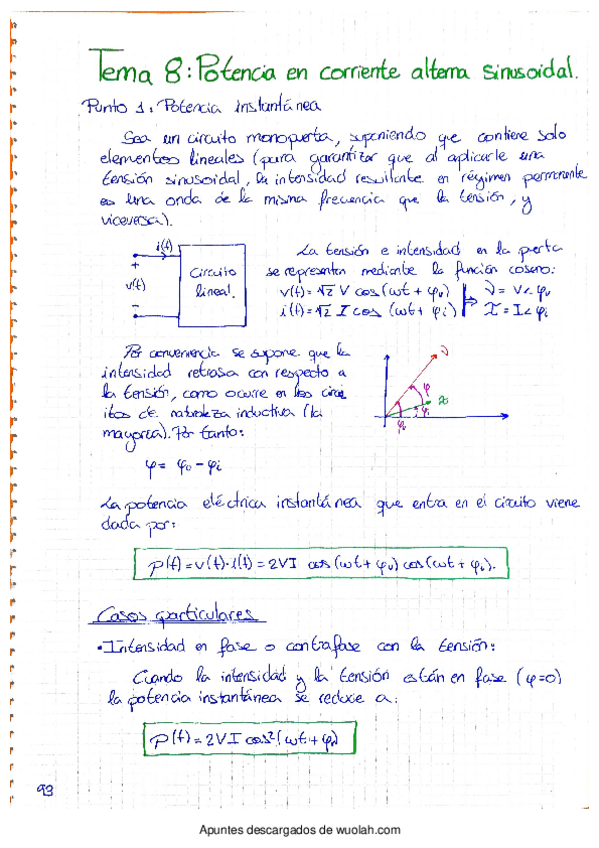 Tema 8: Potencia en corriente alterna sinusoidal.
Punto 1: Potencia instantánea
Sea un circuito monopuerta, suponiendo que contiene solo
elementos lineales (para garantizar que al aplicarle una
tensión sinusoidal, la intensidad resultante en régimen permanente
es una onda de la misma frecuencia que la tensión, y
viceversa).
i(t)
+
v(t)
-
Circuito
lineal.
La tensión e intensidad en la puerta
se representan mediante la función coseno:
v(t)=√2 V cos(ωt + φv)
i(t)=√2 I cos (ωt+ φi)
V = V∠φv
I = I∠φi
Por conveniencia se supone que la
intensidad retrasa con respecto a
la tensión, como ocurre en los circu
itos de naturaleza inductiva (la
mayoría). Por tanto:
φ = φv - φi
V
φ
I
φi
φv
La potencia eléctrica instantánea que entra en el circuito viene
dada por:
p(t) = v(t)·i(t) = 2VI cos(ωt + φv) cos(ωt + φi).
Casos particulares
• Intensidad en fase o contrafase con la tensión:
Cuando la intensidad y la tensión están en fase (φ=0)
la potencia instantánea se reduce a:
p(t) = 2VI cos²(ωt + φv)
93
Apuntes descargados de wuolah.com